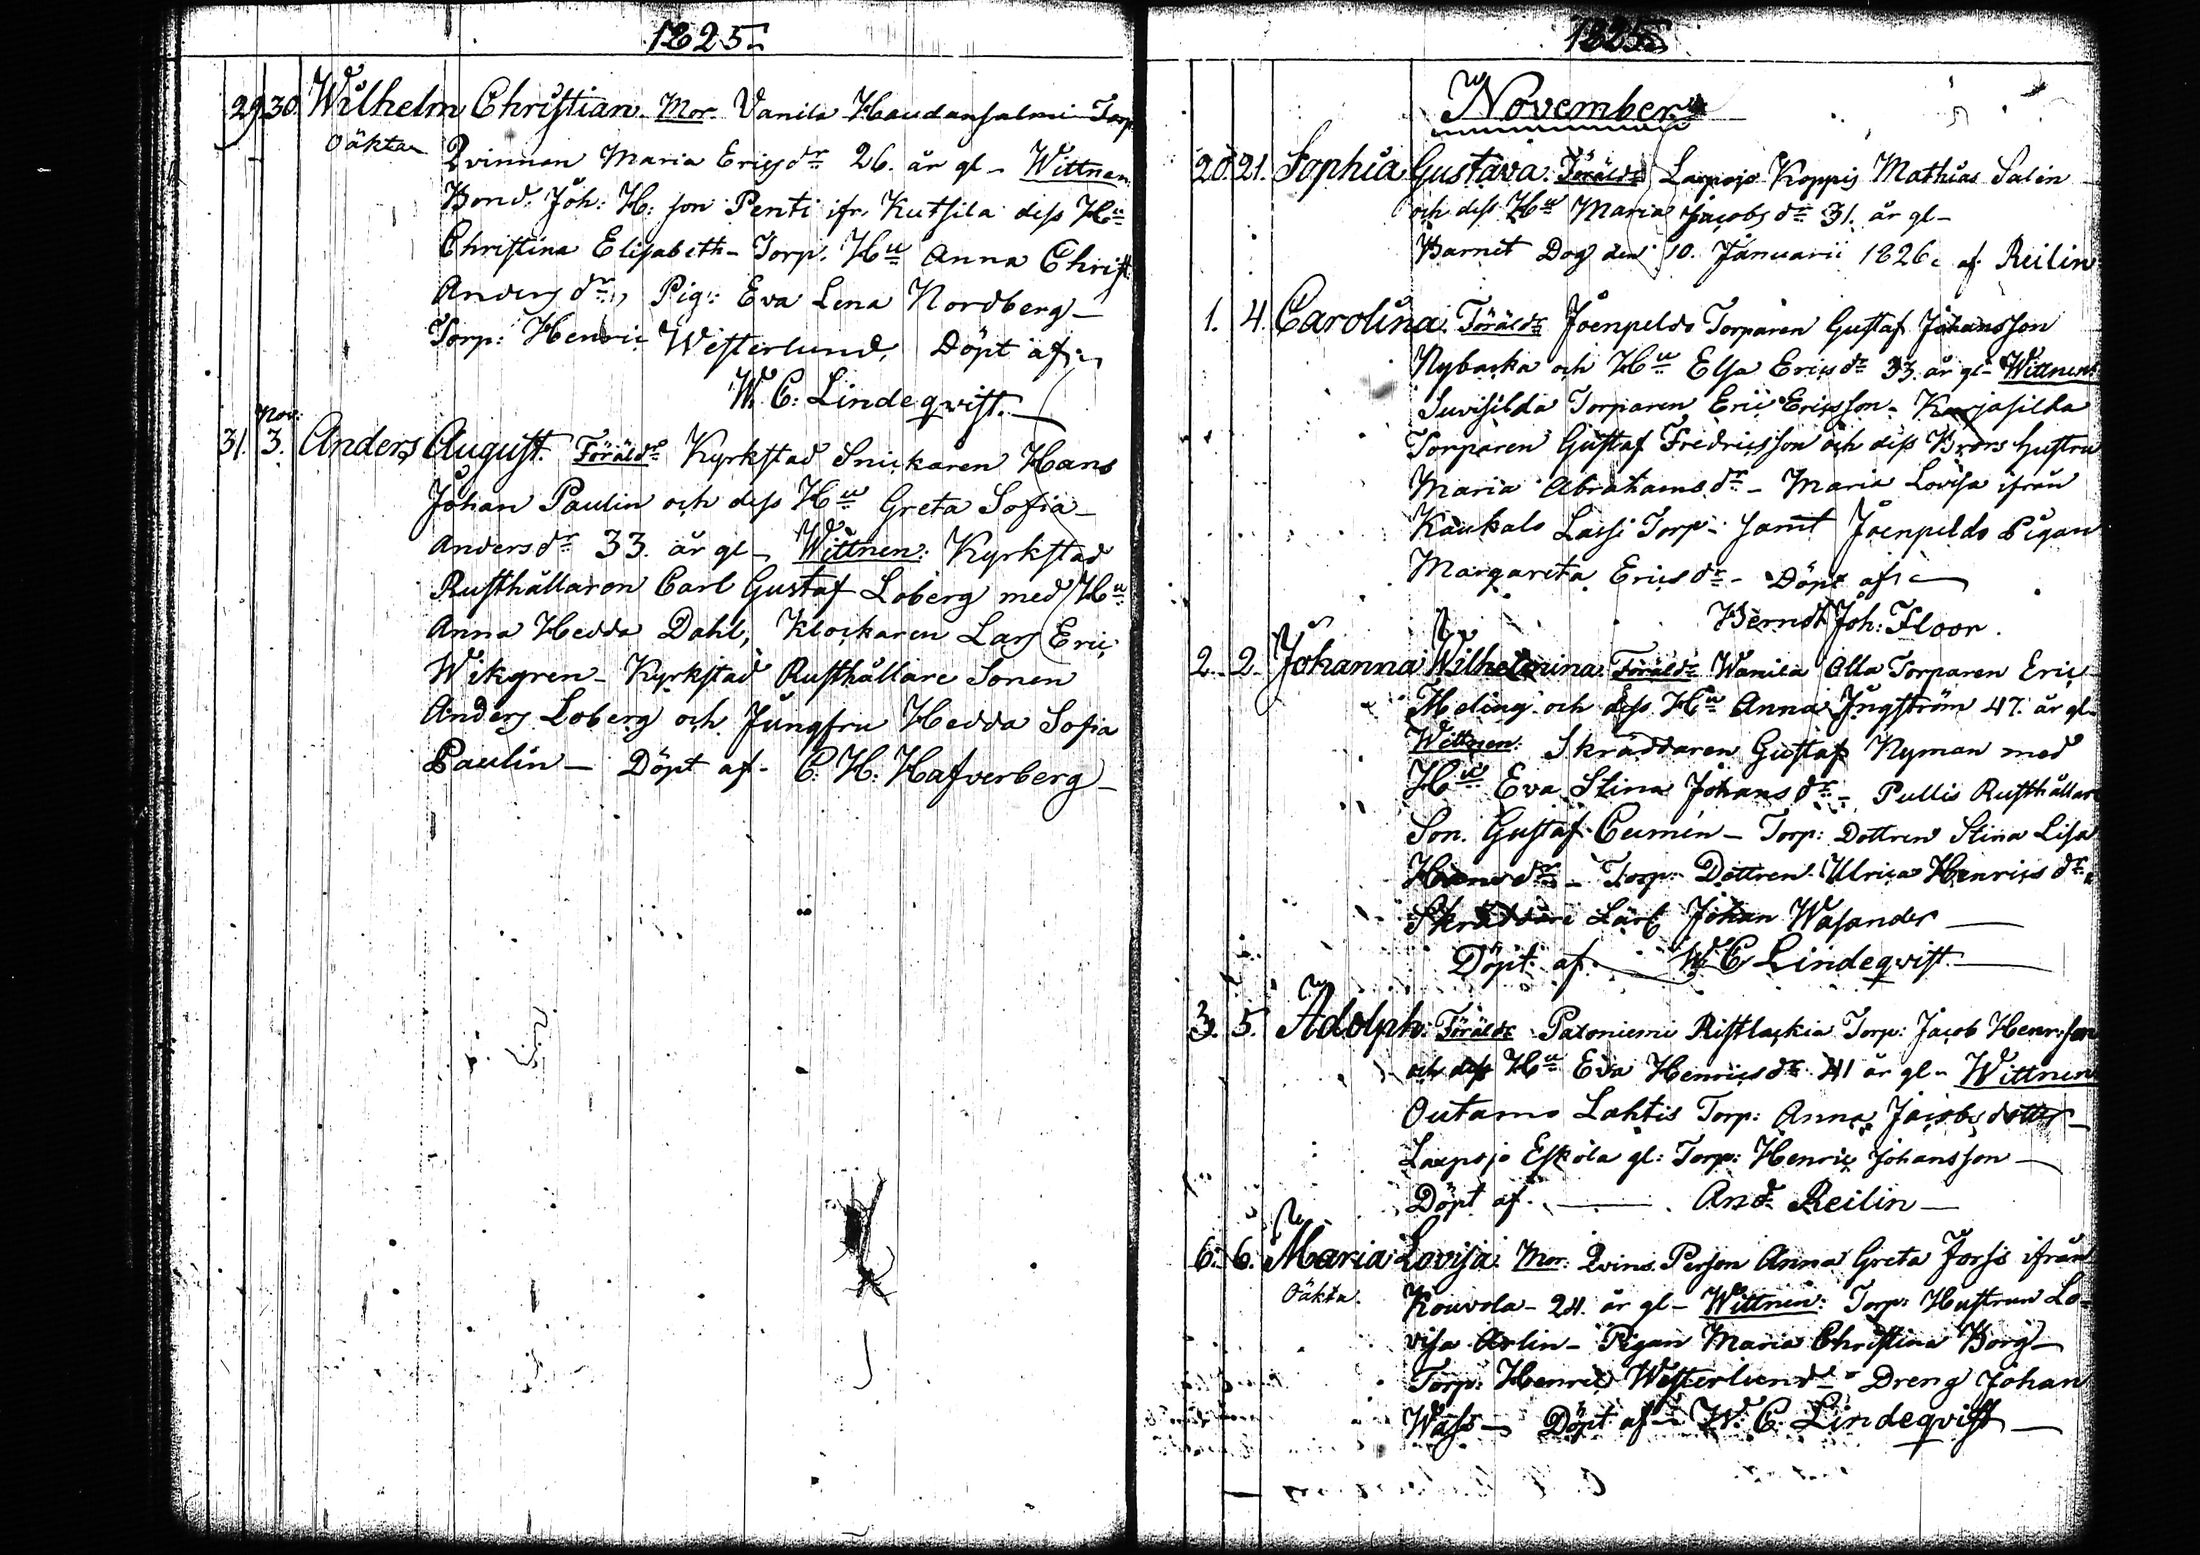 1825.
29. 30. Wilhelm Christian. Mor. Vanila Haudansalmi Torp
Oäkta Qvinnan Maria Ericsdr 26. år gl – Wittnen
Bond. Joh: H: son Penti ifr. Kutsila dess Hu
Christina Elisabeth – Torp. Hu Anna Christ
Andersdr, Pig: Eva Lena Nordberg –
Torp: Henric Westerlund, Döpt af
W. C: Lindeqvist.
Nov:
31. 3. Anders August. Föräldr Kyrkstad Snickaren Hans
Johan Paulin och dess Hu Greta Sofia –
Andersdr 33. år gl – Wittnen: Kyrkstad
Rusthållaren Carl Gustaf Loberg med Hu
Anna Hedda Dahl, Klockaren Lars Eric
Wikgren – Kyrkstad Rusthållare Sonen
Anders Loberg och Jungfru Hedda Sofia
Paulin – Döpt af – C. H: Hafverberg –
1825.
November
20. 21. Sophia Gustava. Föräldr Laupojo Koppis Mathias Salin
och dess Hu Maria Jacobsdr 31. år gl –
Barnet Dog den 10. Januarii 1826. af Reilin
1. 4. Carolina. Föräldr Joenpeldo Torparen Gustaf Johansson
Nybacka och Hu Elsa Ericsdr 33. år gl – Wittnen
Suvisilda Torparen Eric Ericsson – Karjasilda
Torparen Gustaf Fredricsson och dess Brors hustru
Maria Abrahamsdr – Maria Lovisa ifrån
Kaukalo Lassi Torp – samt Joenpeldo Pigan
Margareta Ericsdr – Döpt af
Berndt Joh: Floor.
2. 2. Johanna Wilhelmina. Föräldr Wanila Olla Torparen Eric
Heling och dess Hu Anna Ingström 47. år gl –
Wittnen: Skräddaren Gustaf Nyman med
Hu Eva Stina Johansdr – Pullis Rusthållare
Son. Gustaf Cumin – Torp: Dottren Stina Lisa
Hansdr – Torp: Dottren Ulrica Henricsdr
Skräddare Lärl Johan Wasander –
Döpt af. W. C Lindeqvist –
3. 5. Adolph. Föräldr Patoniemi Ristlackia Torp: Jacob Henr:son
och dess Hu Eva Henricsdr 41 år gl – Wittnen
Outamo Lahtis Torp: Anna Jacobsdotter –
Laupojo Eskola gl: Torp: Henric Johansson –
Döpt af. And. Reilin –
6. 6. Maria Lovisa. Mor: Qvins. Person Anna Greta Forss ifrån
Oäkta. Kouvola – 24. år gl – Wittnen: Torp: Hustrun Lo-
visa Arlin – Pigan Maria Christina Borg –
Torp: Henric Westerlund – Dreng Johan
Wass – Döpt af – W. C. Lindeqvist –